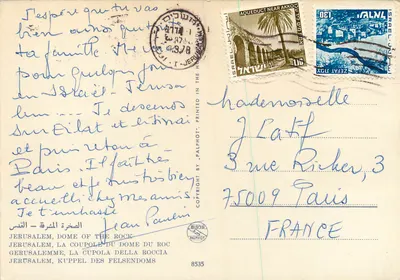 J'espère que tu vas
bien ainsi que
ta famille. Je
pour quelques jours
en Israël - Jérusa
lem... Je descends
sur Eilat et
et puis retour à
Paris. Il fait très
beau et je suis très bien
accueilli chez mes amis.
Je t'embrasse
Jean Paulin
الصخرة المشرفة - القدس
JERUSALEM, DOME OF THE ROCK
JERUSALEM, LA COUPOLE DU DOME DU ROC
GERUSALEMME, LA CUPOLA DELLA ROCCIA
JERUSALEM, KUPPEL DES FELSENDOMS
8535
COPYRIGHT BY "PALPHOT", PRINTED IN THE
AQUEDUCT NEAR AKKO
ISRAEL
ישראל
ZEFAT
ISRAEL
ישראל
1.30
Mademoiselle
J Latif
3 rue Richer, 3
75009 Paris
FRANCE